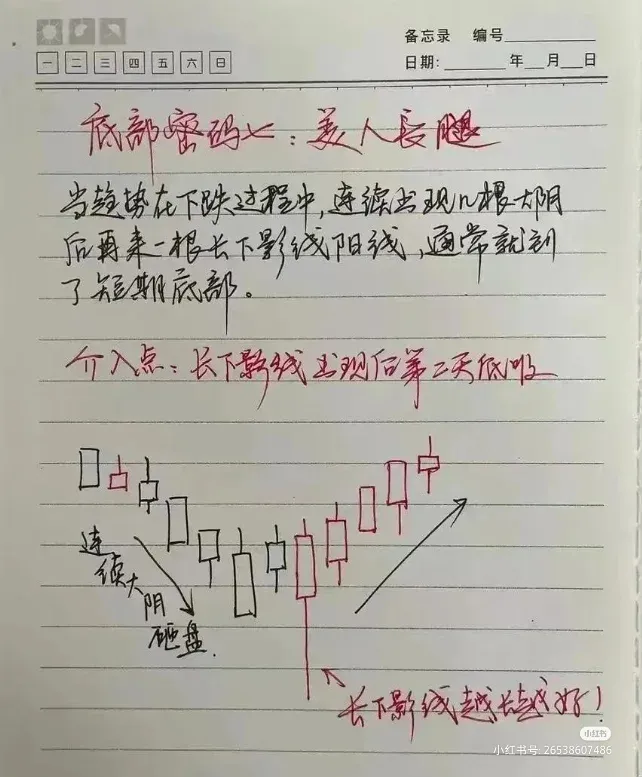 备忘录 编号
一 二 三 四 五 六 日
日期: 年 月 日
底部密码七:美人長腿
当趋势在下跌过程中,连续出现几根大阴
后再来一根长下影线阳线,通常就到
了短期底部。
介入点:长下影线出现后第二天低吸
连
续大
阴
砸盘.
长下影线越长越好!
小红书
小红书号:26538607486